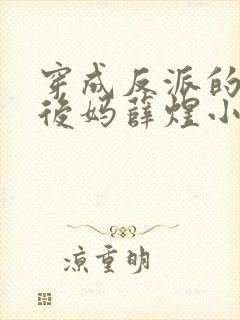 穿成反派的
後妈薛煌小
凉重明